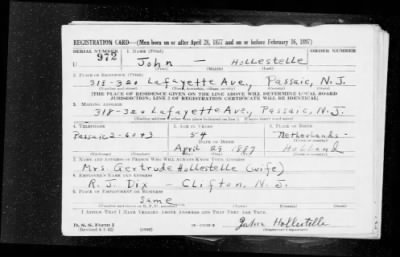 REGISTRATION CARD—(Men born on or after April 28, 1877 and on or before February 16, 1897)
SERIAL NUMBER 1. NAME (Print) ORDER NUMBER
U 972 John - Hollestelle
(First) (Middle) (Last)
2. PLACE OF RESIDENCE (Print)
318-320 Lafayette Ave., Passaic, N.J.
[THE PLACE OF RESIDENCE GIVEN ON THE LINE ABOVE WILL DETERMINE LOCAL BOARD
JURISDICTION; LINE 2 OF REGISTRATION CERTIFICATE WILL BE IDENTICAL]
3. MAILING ADDRESS
318-320 Lafayette Ave, Passaic, N.J.
4. TELEPHONE 5. AGE IN YEARS 6. PLACE OF BIRTH
Passaic 2- 54 Netherlands-
DATE OF BIRTH
April 29 1887 Holland
7. NAME AND ADDRESS OF PERSON WHO WILL ALWAYS KNOW YOUR ADDRESS
Mrs. Gertrude Hollestelle (wife)
8. EMPLOYER'S NAME AND ADDRESS
R. J. Dix - Clifton, N.J.
9. PLACE OF EMPLOYMENT OR BUSINESS
Same
I AFFIRM THAT I HAVE VERIFIED ABOVE ANSWERS AND THAT THEY ARE TRUE.
D. S. S. Form 1
John Hollestelle